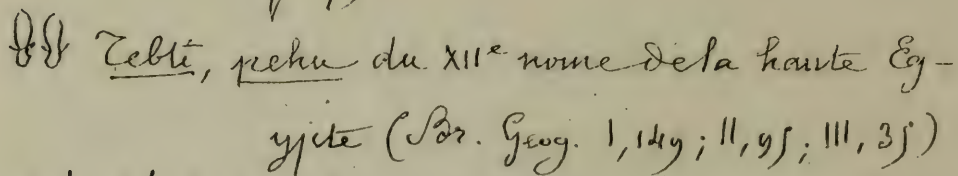 Zebti, pehu du XIIe nome de la haute Eg-
ypte (Br. Geog. I, ; II, ; III, )